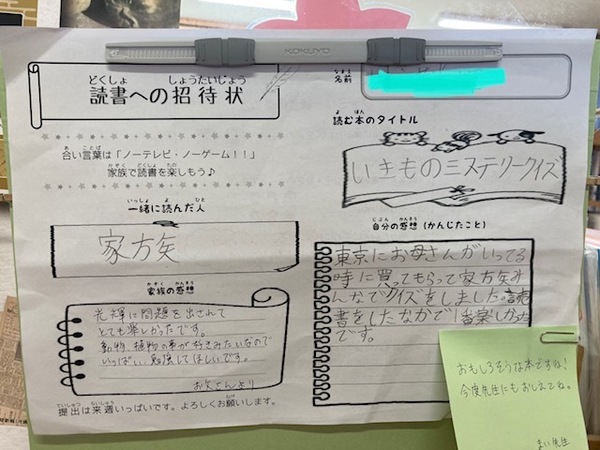 KOKUYO
どくしょ しょうたいじょう
読書への招待状
あい ことば
合い言葉は「ノーテレビ・ノーゲーム！！」
かぞく どくしょ たの
家族で読書を楽しもう♪
いっしょ よ ひと
一緒に読んだ人
家方矢
かぞく かんそう
家族の感想
光輝に問題を出されて
とても楽しかったです。
動物、植物の事が好きみたいなので
いっぱい勉強してほしいです。
お父さんより
ていしゅつ らいしゅう ねが
提出は来週いっぱいです。よろしくお願いします。
なまえ
名前
よ ほん
読む本のタイトル
いきものミステリークイズ
じぶん かんそう
自分の感想（かんじたこと）
東京にお母さんがいってる
時に買ってもらって家方矢み
んなでクイズをしました。読
書をしたなかで1番楽しかった
です。
おもしろそうな本ですね！
今度先生にもおしえてね。
まい先生